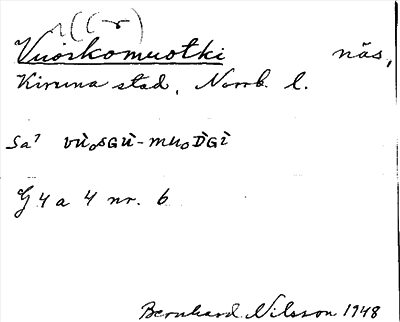 Vuoskomuotki näs,
Kiruna stad, Norrb. l.
Sa⁷ vu̇̀ₒsGu̇̀-muₒD̀Gi̇̀
G 4 a 4 nr. 6
Bernhard Nilsson 1948